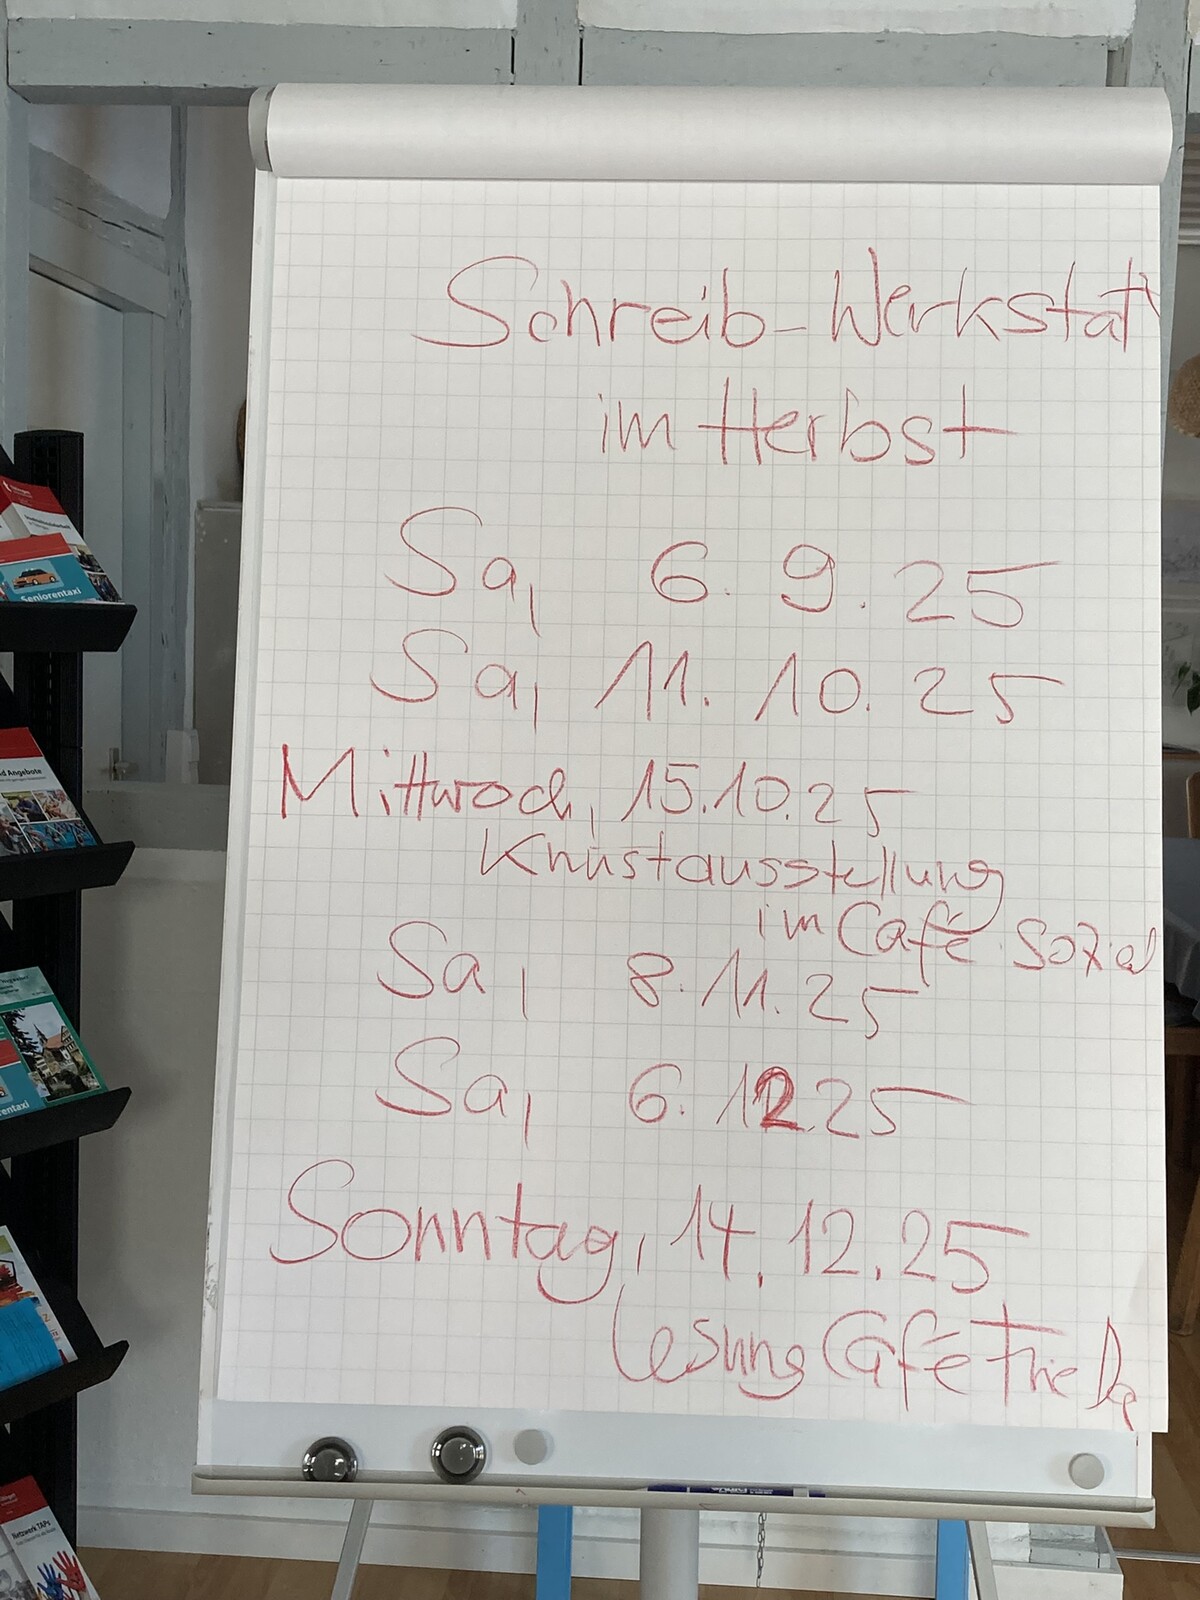 Schreib-Werkstatt
im Herbst
Sa, 6. 9. 25
Sa, 11. 10. 25
Mittwoch, 15.10.25
Knustausstellung
im Café Sozial
Sa, 8. 11. 25
Sa, 6. 12 25
Sonntag, 14. 12. 25
Lesung Café
Seniorentaxi
d Angebote
rentaxi
Netzwerk TAPs